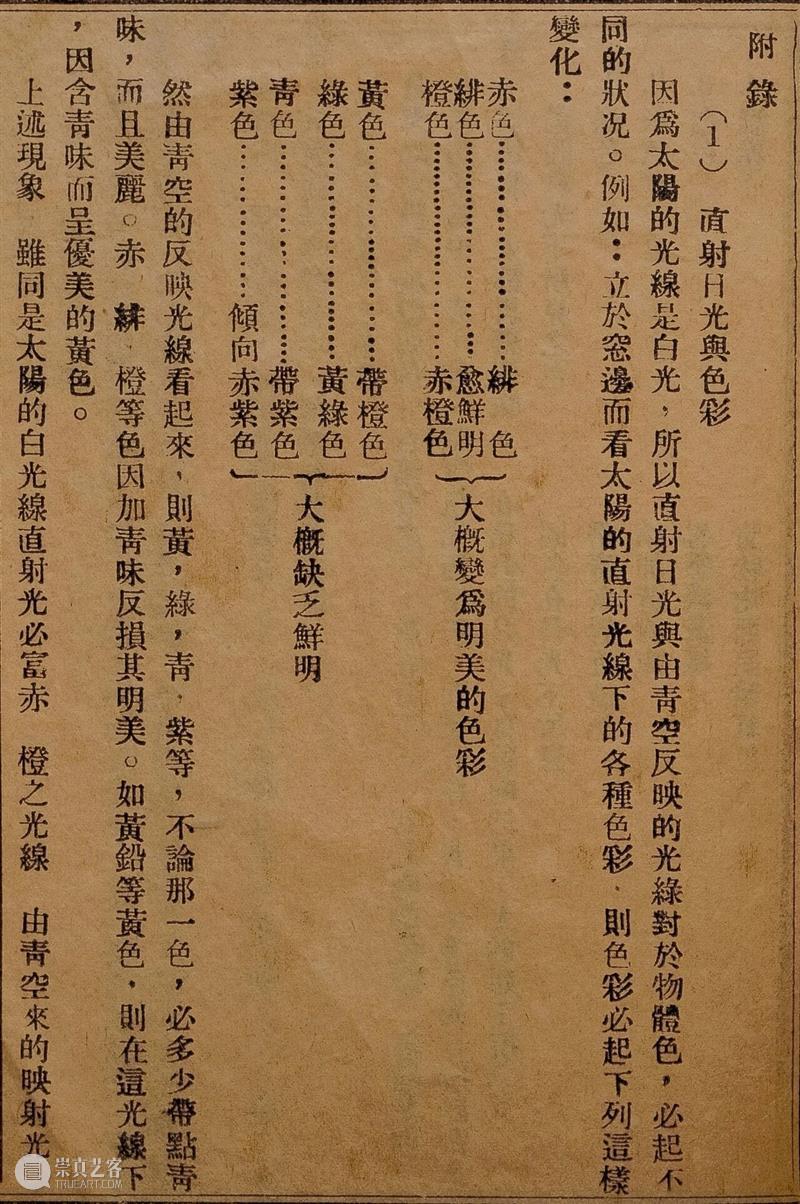 附錄
（1） 直射日光與色彩
因爲太陽的光線是白光，所以直射日光與由青空反映的光綠對於物體色，必起不
同的狀况。例如：立於窓邊而看太陽的直射光線下的各種色彩、則色彩必起下列這樣
變化：
赤色…………………緋 色
緋色…………………愈鮮明
橙色…………………赤橙色
大槪變爲明美的色彩
黃色…………………帶橙色
綠色…………………黃綠色
青色…………………帶紫色
紫色……………傾向赤紫色
大槪缺乏鮮明
然由青空的反映光線看起來，則黃，綠，青、紫等，不論那一色，必多少帶點青
味，而且美麗。赤 緋、橙等色因加青味反損其明美。如黃鉛等黃色、則在這光線下
，因含青味而呈優美的黃色。
上述現象 雖同是太陽的白光線直射光必富赤 橙之光線 由青空來的映射光
崇真艺客
TRUEART.COM